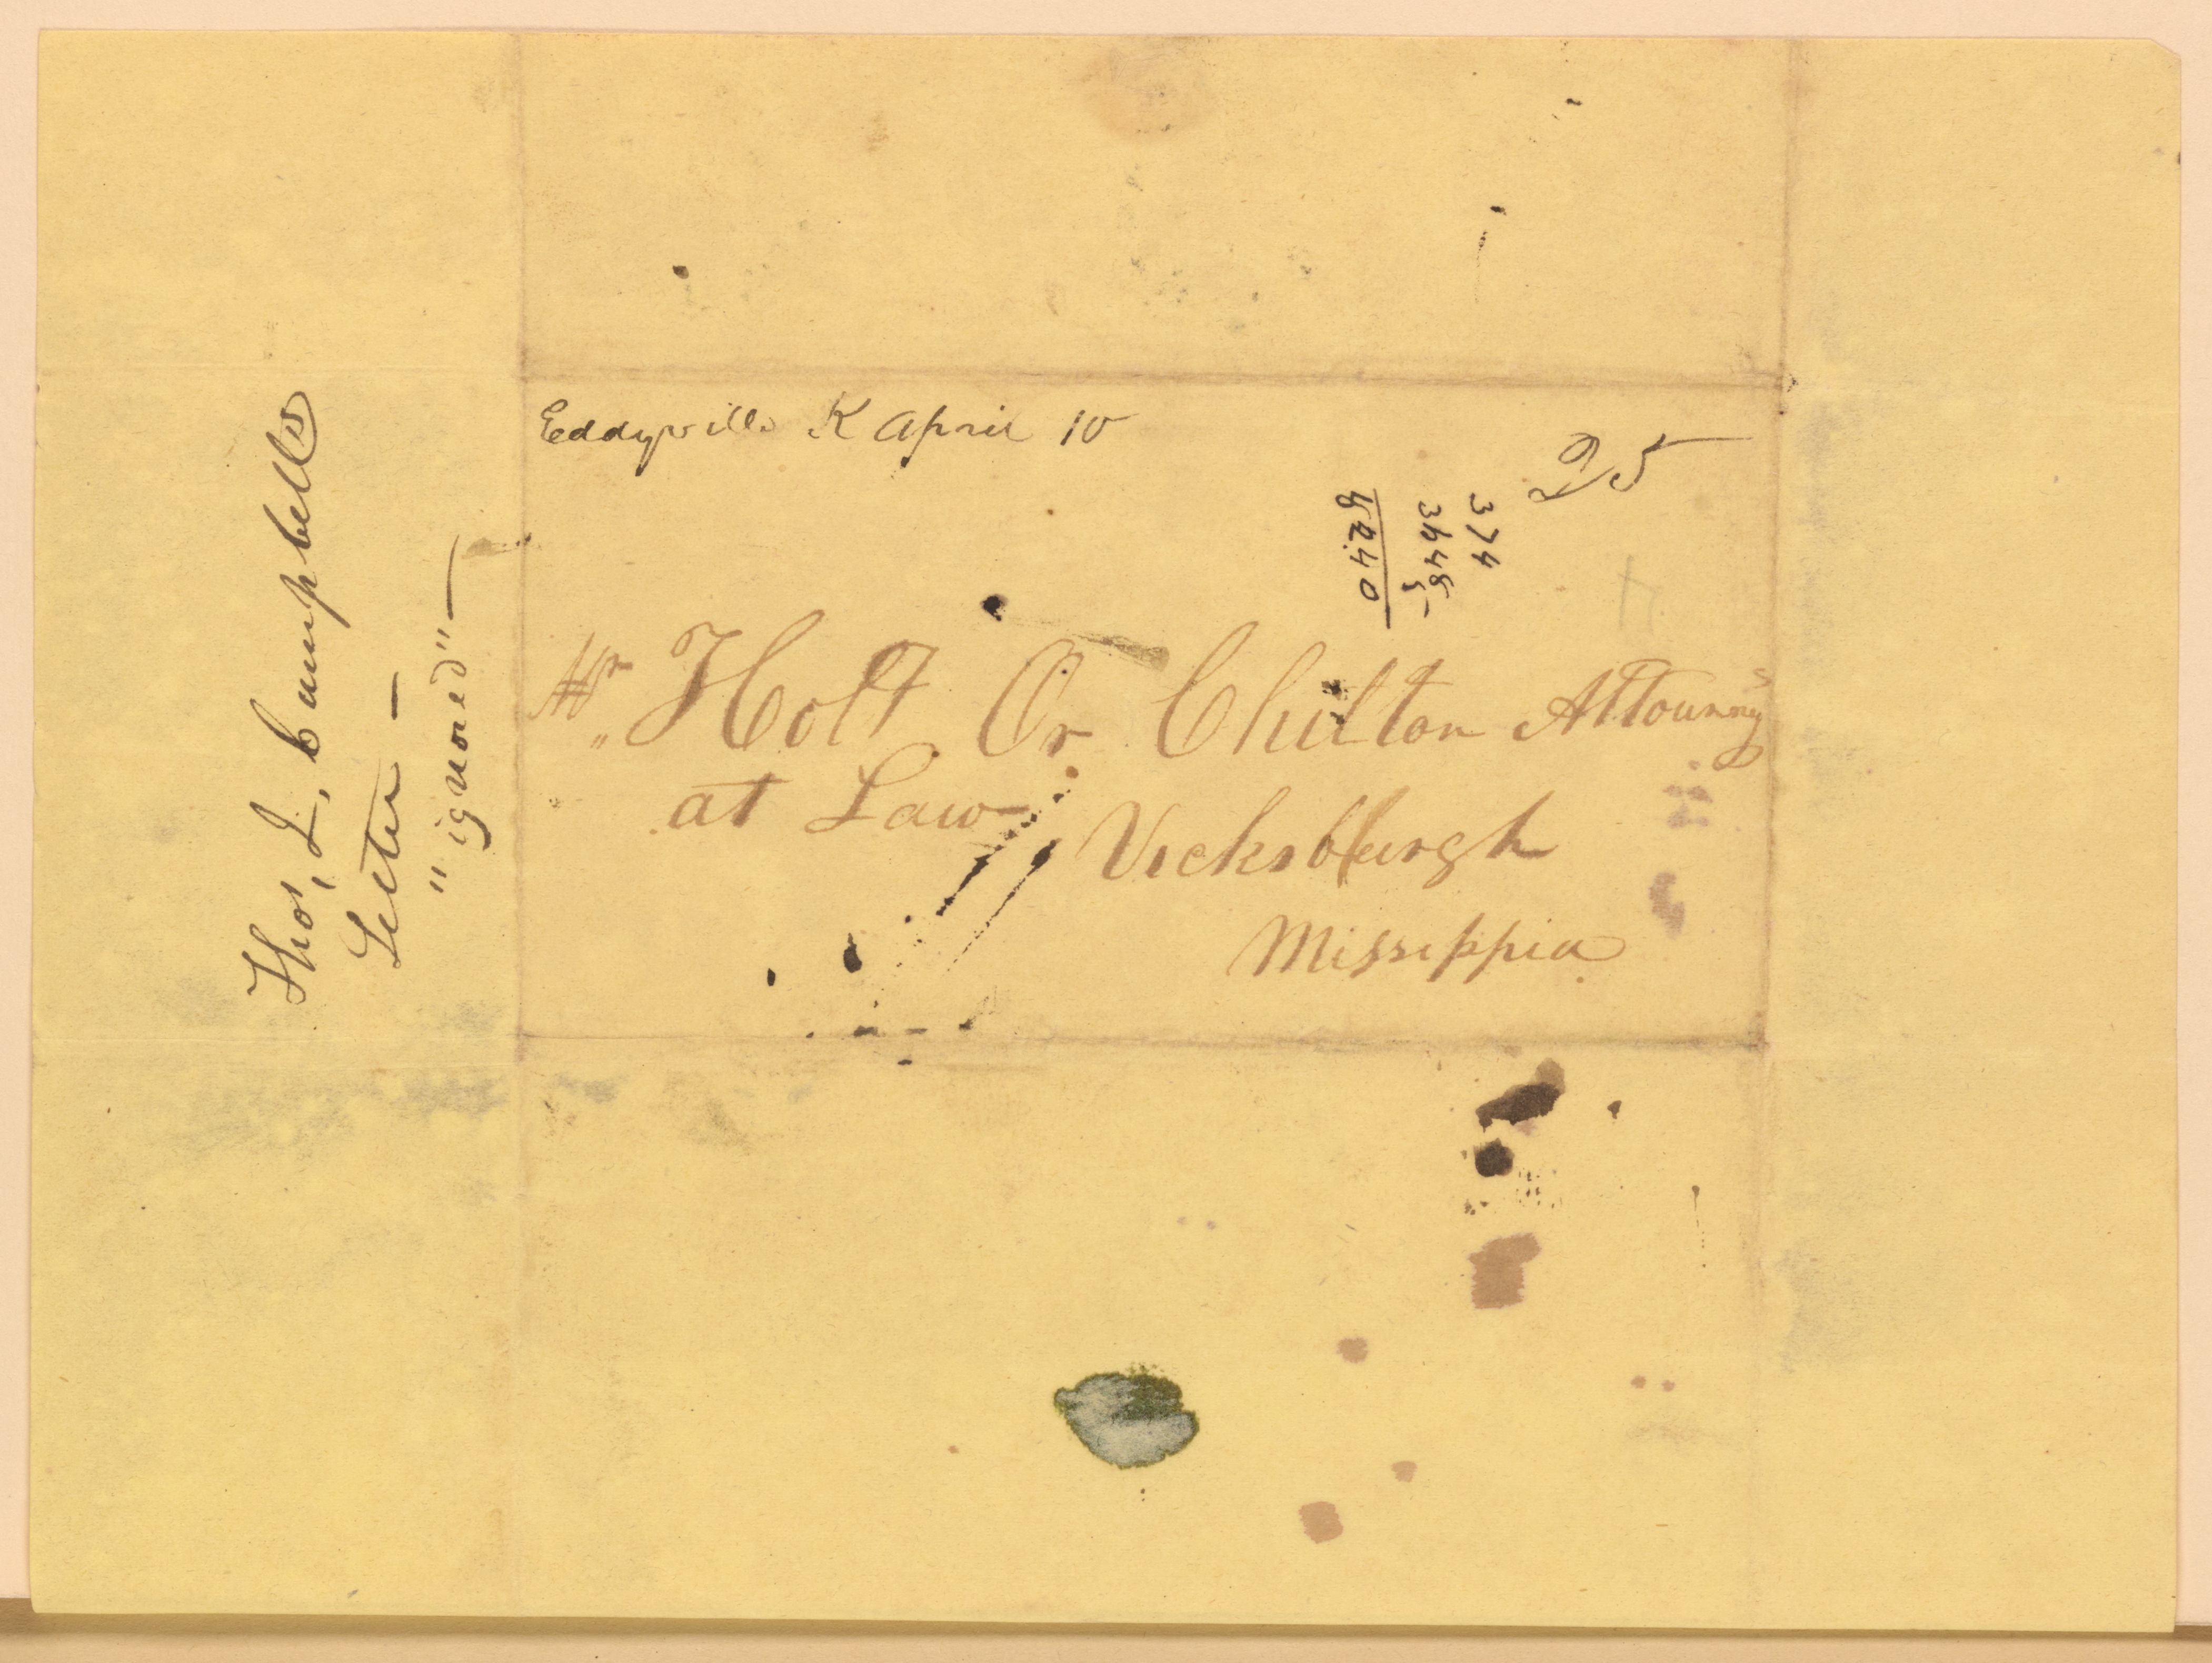 Thos. L. Campbells
Letter —
"ignored" —
Eddyville K April 10
25
374
Mr Holt Or Chilton Attourny's
at Law
Vicksburgh
Missippia